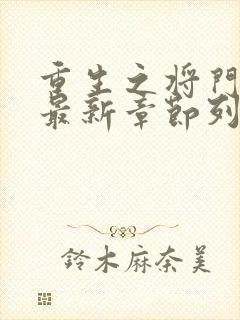 重生之将門
最新章節列
鈴木麻奈美